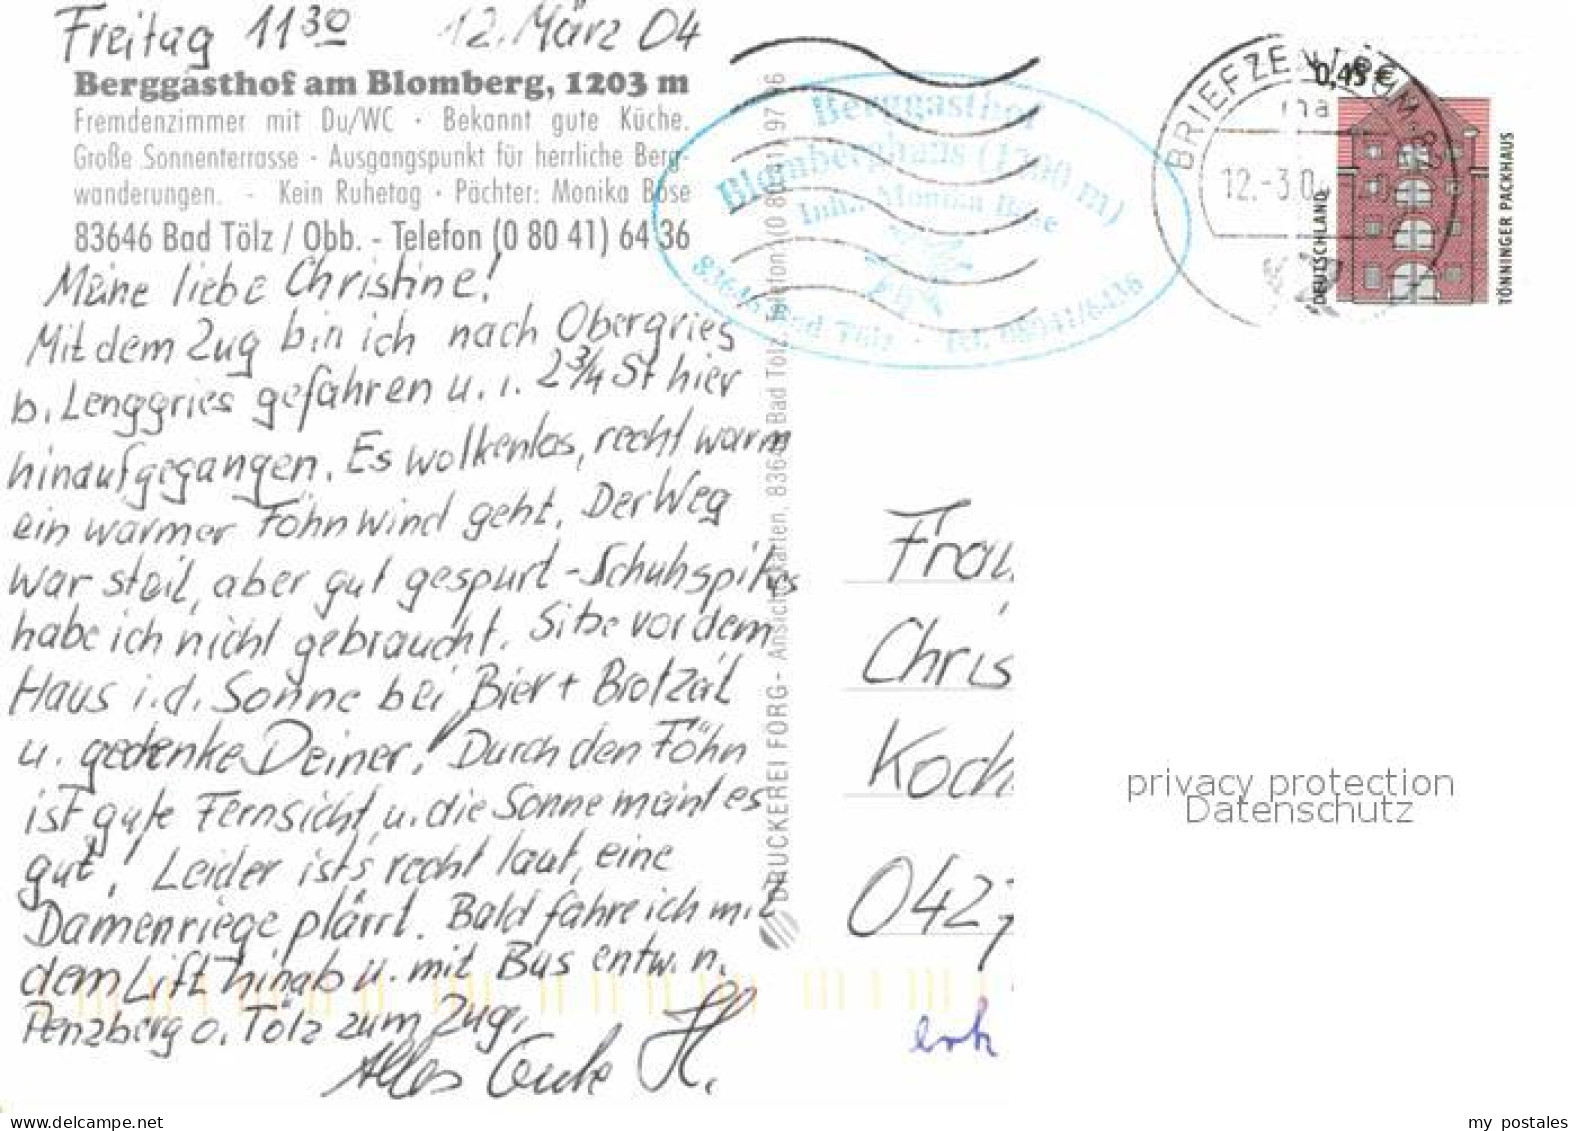 Freitag 11 30 12. März 04
Berggasthof am Blomberg, 1203 m
Fremdenzimmer mit Du/WC · Bekannt gute Küche.
Große Sonnenterrasse · Ausgangspunkt für herrliche Berg-
wanderungen. - Kein Ruhetag · Pächter: Monika Böse
83646 Bad Tölz / Obb. - Telefon (0 80 41) 64 36
Meine liebe Christine!
Mit dem Zug bin ich nach Obergries
b. Lenggries gefahren u. i. 2 3/4 St hier
hinaufgegangen. Es wolkenlos, recht warm
ein warmer Föhnwind geht. Der Weg
war steil, aber gut gespurt - Schuhspikes
habe ich nicht gebraucht. Sitze vor dem
Haus i.d. Sonne bei Bier + Brotzeit
u. gedenke Deiner! Durch den Föhn
ist gute Fernsicht u. die Sonne meint es
gut! Leider ist's recht laut, eine
Damenriege plärrt. Bald fahre ich mit
dem Lift hinab u. mit Bus entw. n.
Penzberg o. Tölz zum Zug.
Alles Gute H.
DRUCKEREI FÖRG - Ansichtskarten, 83646 Bad Tölz, Telefon (0 80 41) 97 96
Berggasthof
Blomberghaus (1200 m)
Inh.: Monika Böse
83646 Bad Tölz · Tel. 08041/6436
BRIEFZENTRUM 82
12.-3.0
0,45 €
DEUTSCHLAND
TÖNNINGER PACKHAUS
Frau
Chris
Koch
0427
privacy protection
Datenschutz
my postales
www.delcampe.net